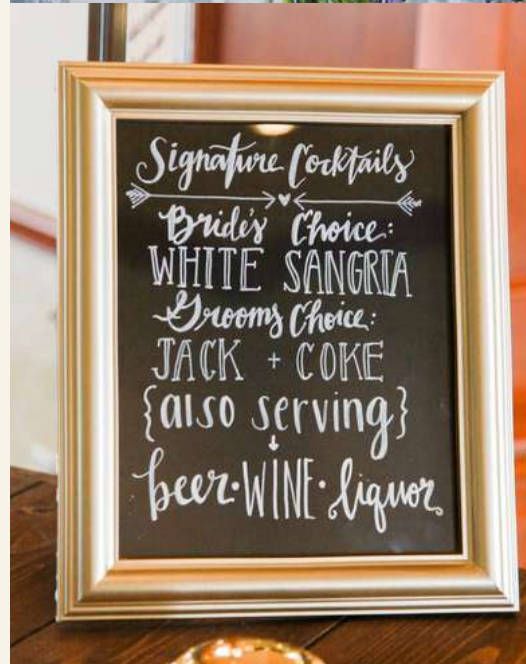 Signature Cocktails
Bride's Choice:
WHITE SANGRIA
Grooms Choice:
JACK + COKE
{also serving}
beer•WINE•liquor